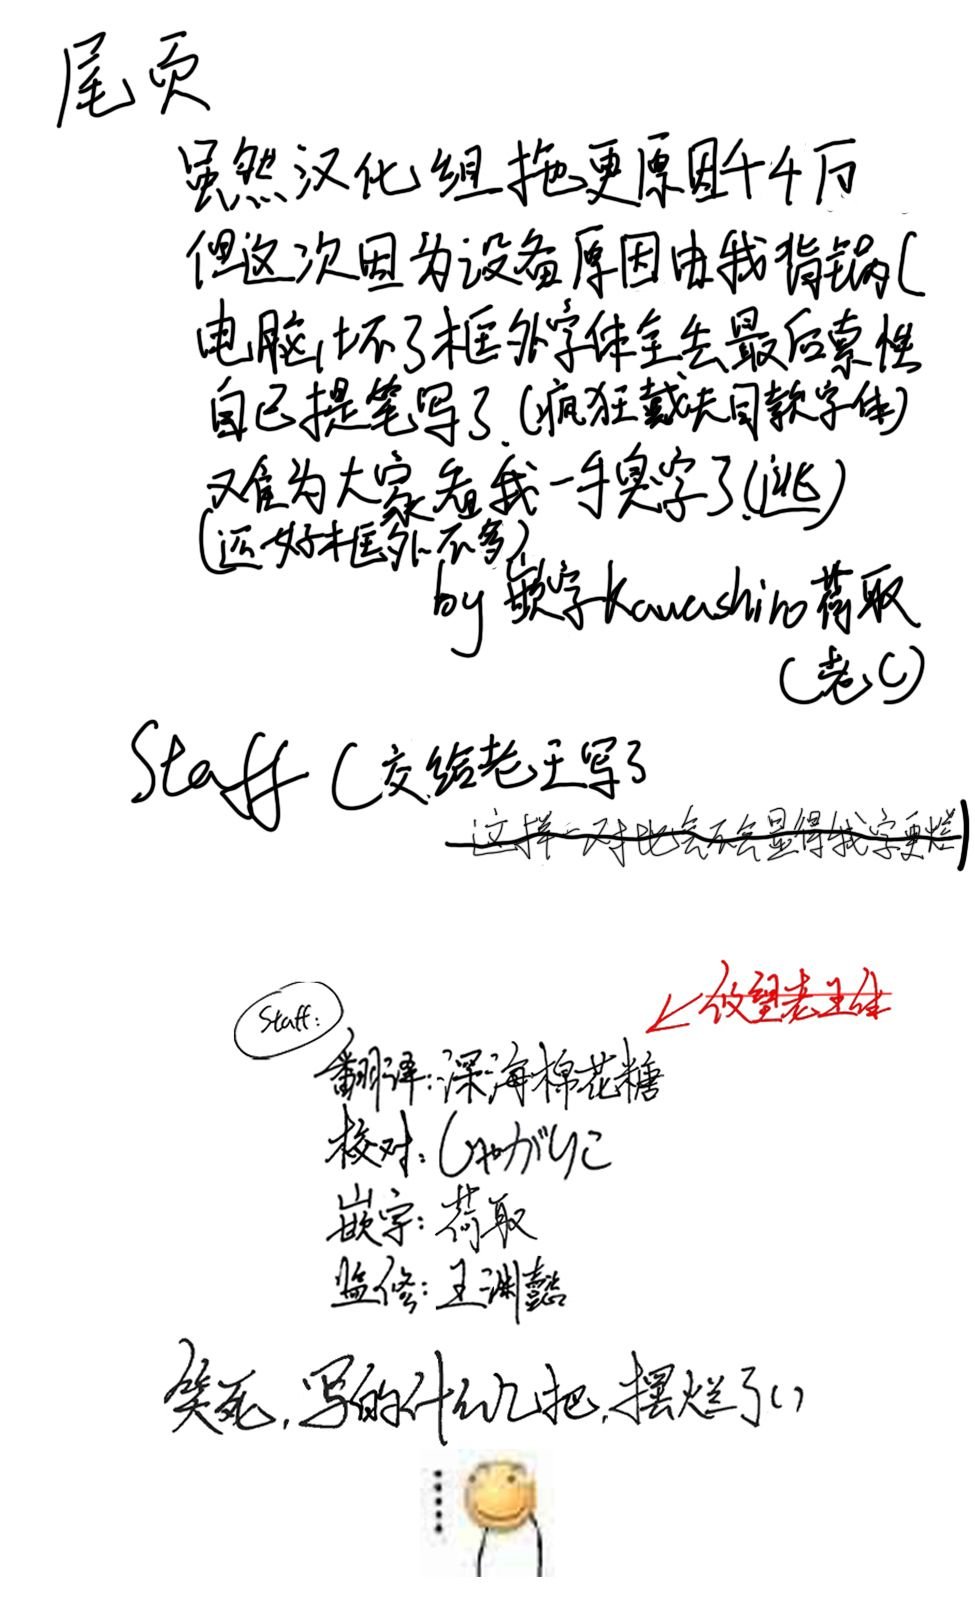 尾页
虽然汉化组拖更原因千千万
但这次因为设备原因由我背锅(
电脑坏了框外字体全丢最后索性
自己提笔写了(疯狂戴夫同款字体)
难为大家看我一手臭字了(逃)
(还好框外不多)
by 嵌字Kawashiro荷取
(老C)
Staff (交给老王写了
这样一对比会不会显得我字更烂
仅望老王体
Staff:
翻译:深海棉花糖
校对:じゃがりこ
嵌字:荷取
监修:王渊懿
笑死,写的什么几把,摆烂了()